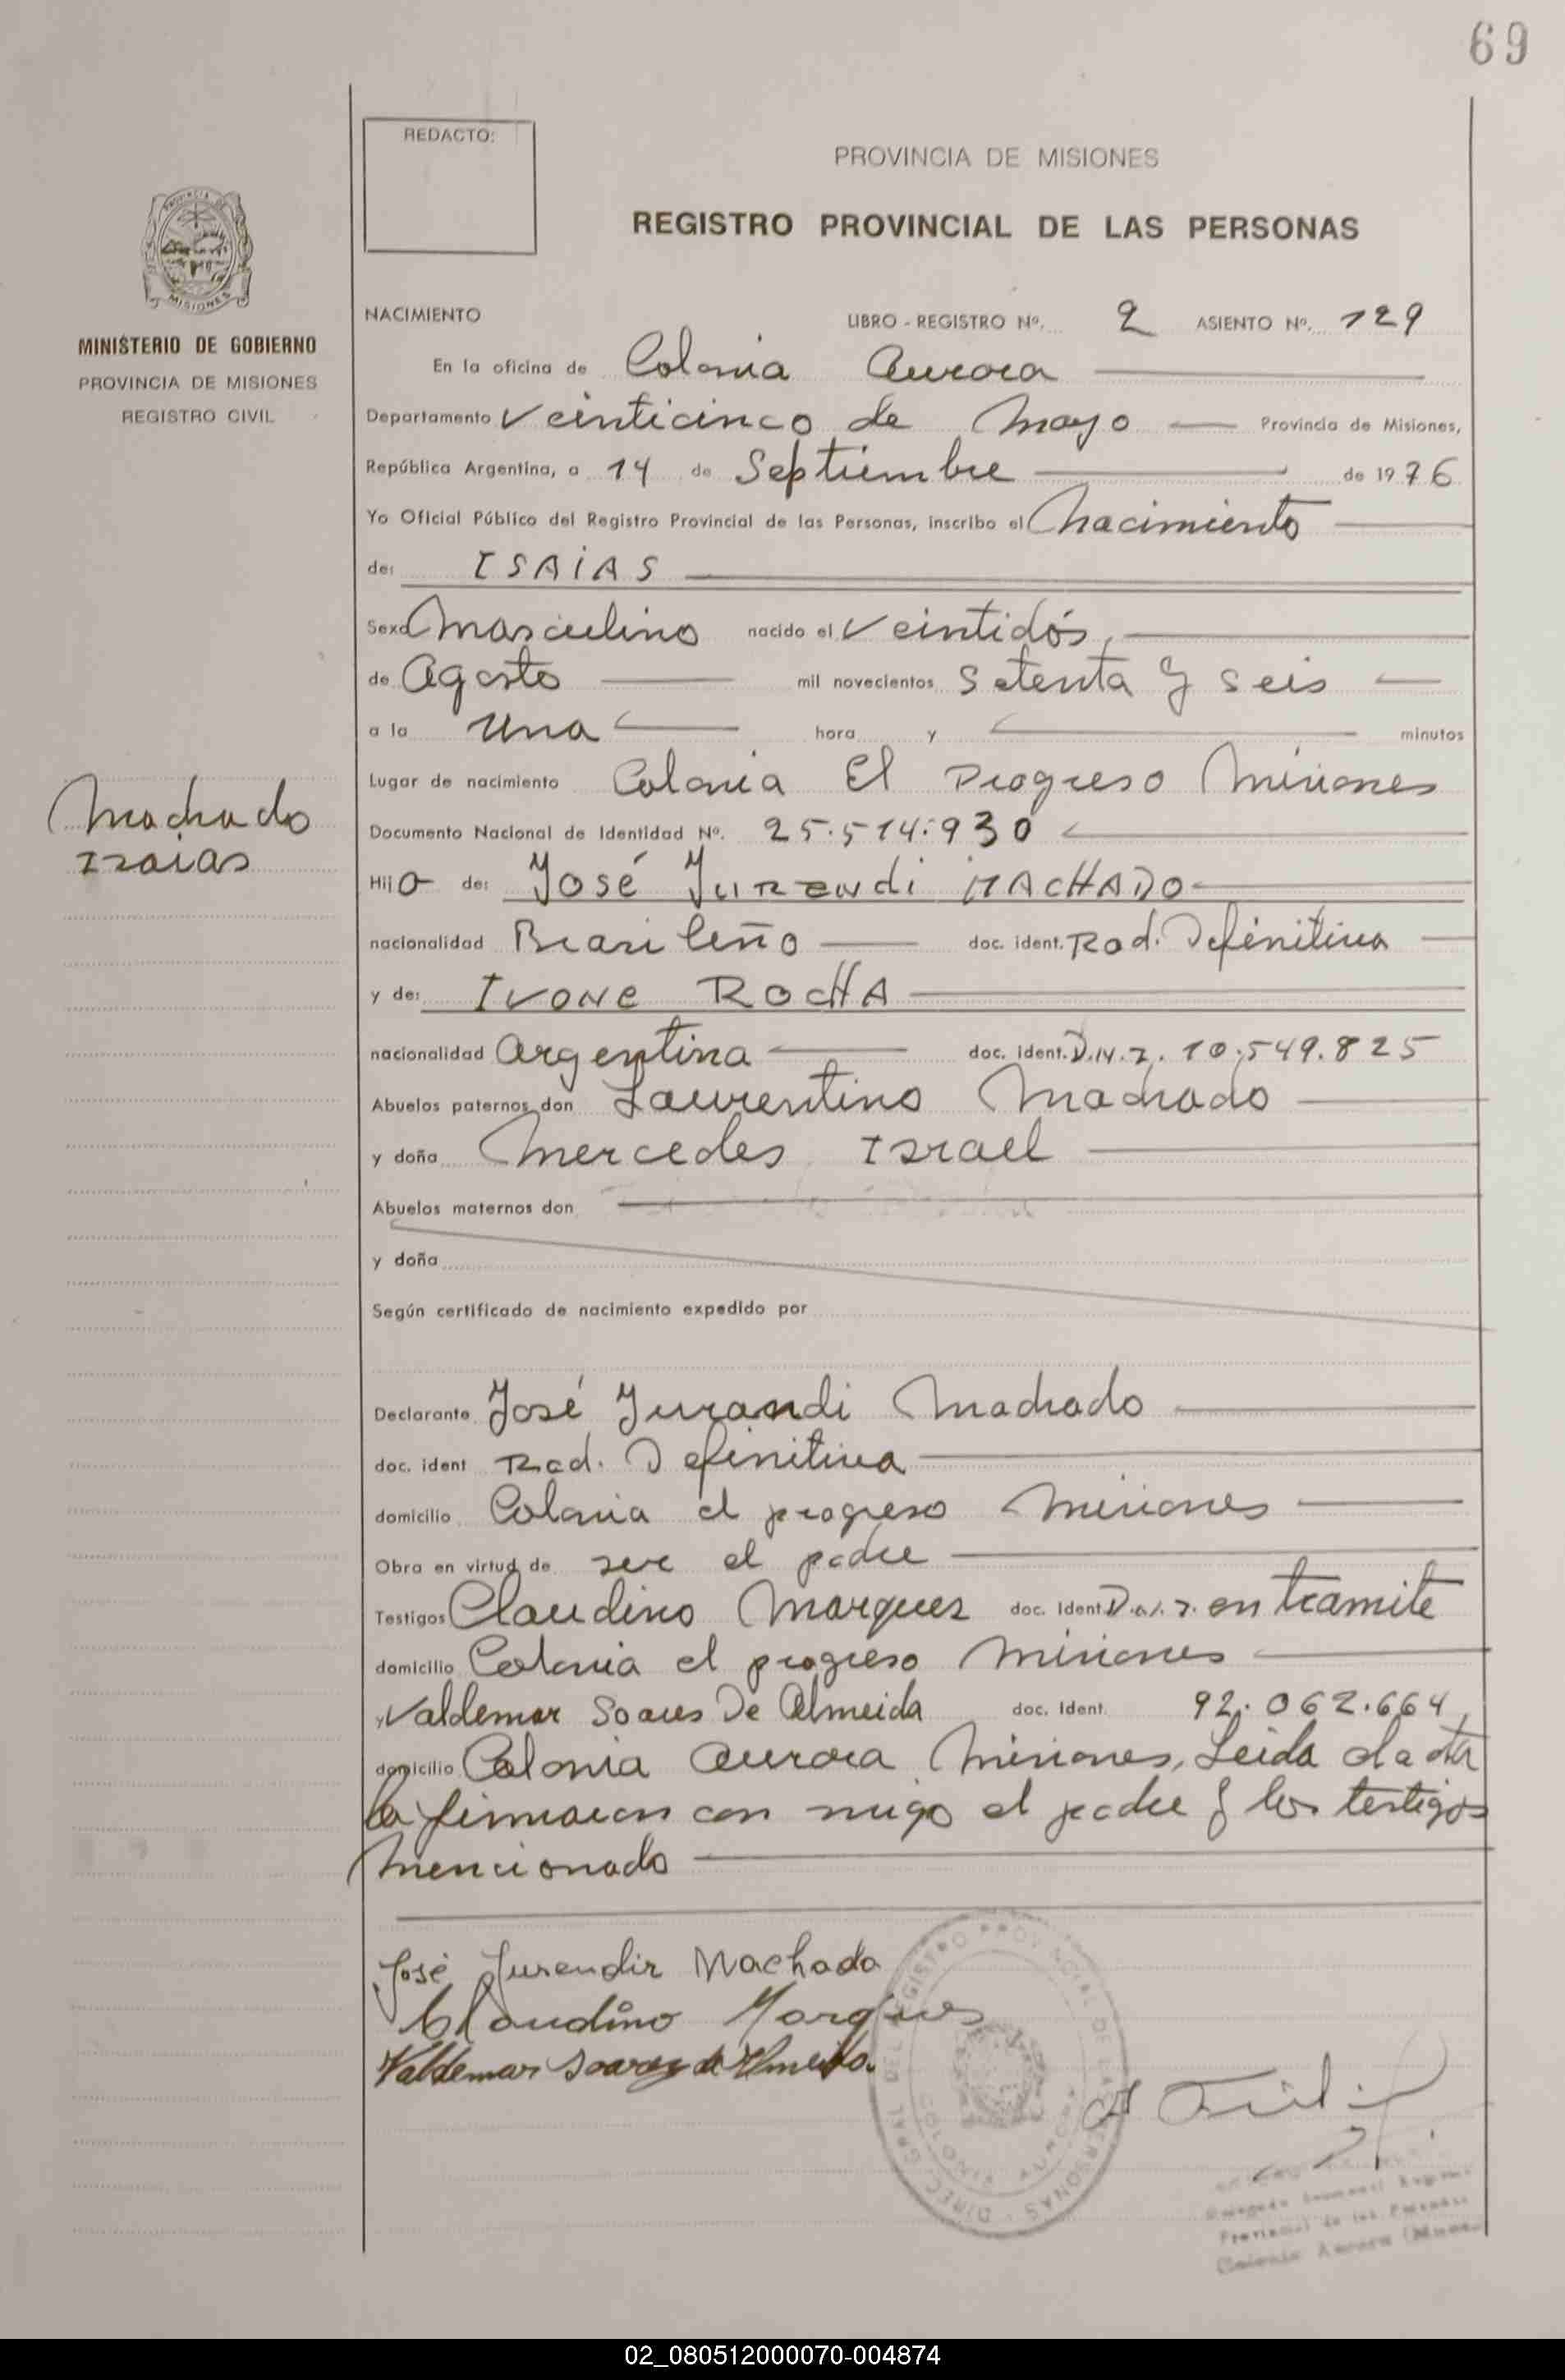 69
REDACTO:
PROVINCIA DE MISIONES
REGISTRO PROVINCIAL DE LAS PERSONAS
PROVINCIA DE
MISIONES
MINISTERIO DE GOBIERNO
PROVINCIA DE MISIONES
REGISTRO CIVIL
NACIMIENTO LIBRO - REGISTRO Nº. 2 ASIENTO Nº. 129
En la oficina de Colonia Aurora
Departamento Veinticinco de Mayo Provincia de Misiones,
República Argentina, a 14 de Septiembre de 1976
Yo Oficial Público del Registro Provincial de las Personas, inscribo el Nacimiento
de: ISAIAS
Sexo Masculino nacido el Veintidós,
de Agosto mil novecientos Setenta y seis
a la Una hora y minutos
Lugar de nacimiento Colonia El Progreso Misiones
Machado
Isaias
Documento Nacional de Identidad Nº. 25.514.930
Hijo de: José Jurandi MACHADO
nacionalidad Brasileño doc. ident. Rad. Definitiva
y de: Ivone ROCHA
nacionalidad Argentina doc. ident. D.N.I. 10.549.825
Abuelos paternos don Laurentino Machado
y doña Mercedes Israel
Abuelos maternos don
y doña
Según certificado de nacimiento expedido por
Declarante José Jurandi Machado
doc. ident Rad. Definitiva
domicilio Colonia el progreso Misiones
Obra en virtud de ser el padre
Testigos Claudino Marques doc. Ident. D.N.I. en tramite
domicilio Colonia el progreso Misiones
y Valdemar Soares De Almeida doc. Ident. 92.062.664,
domicilio Colonia Aurora Misiones, Leida el acta
la firmaron con migo el padre y los testigos
mencionado
José Jurandir Machado
Claudino Marques
Valdemar Soares de Almeida.
DIREC. GRAL. DEL REGISTRO PROVINCIAL DE LAS PERSONAS
COLONIA AURORA
Provincial de las Personas
Colonia Aurora
02_080512000070-004874